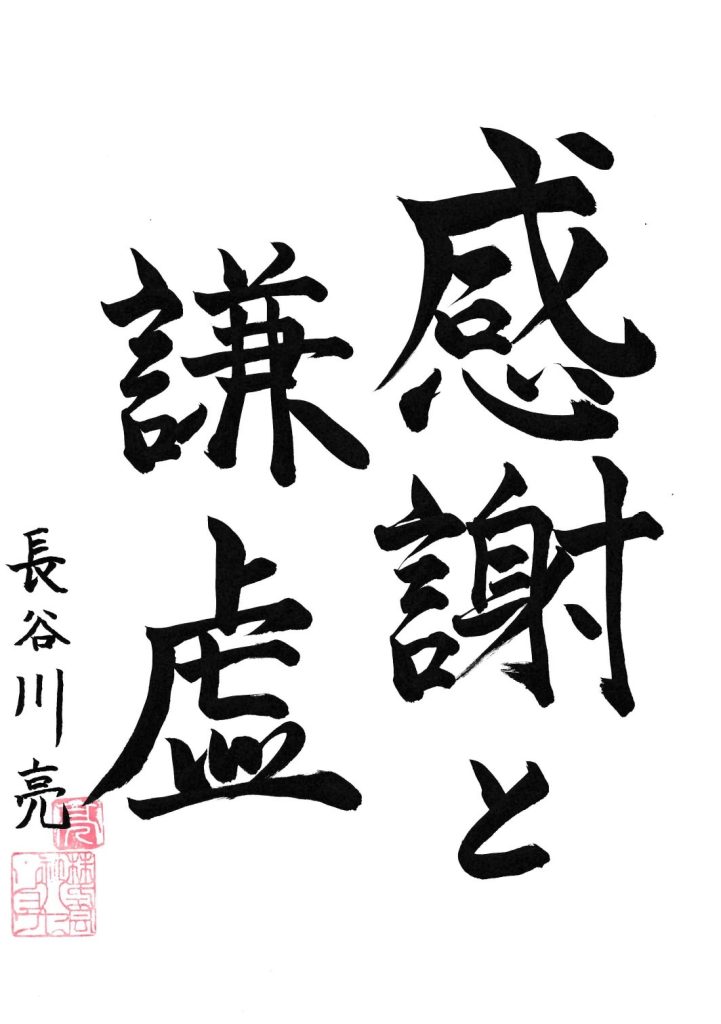 感謝と
謙虚
長谷川亮